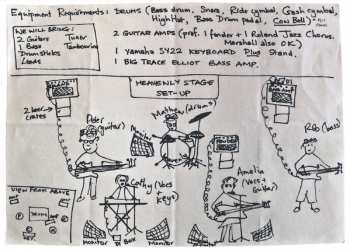 Equipment Requirements: DRUMS (Bass drum, Snare, Ride cymbal, Crash cymbal,
High Hat, Bass Drum pedal, Cow Bell)
WE WILL BRING:
2 Guitars Tuner
1 Bass Tambourine
Drumsticks
Leads
2 GUITAR AMPS (pref. 1 fender + 1 Roland Jazz Chorus.
Marshall also OK)
1 Yamaha SY22 KEYBOARD Plus Stand.
1 BIG TRACE ELLIOT BASS AMP.
HEAVENLY STAGE
SET-UP
2 beer
crates
Peter
(guitar)
Mathew (drums)
Rob (bass)
Monitor
Cathy (Vocs
Keys)
Amelia
(Vocs +
Guitar)
VIEW FROM ABOVE
DRUMS
KEY
Monitor
DI Box
Monitor